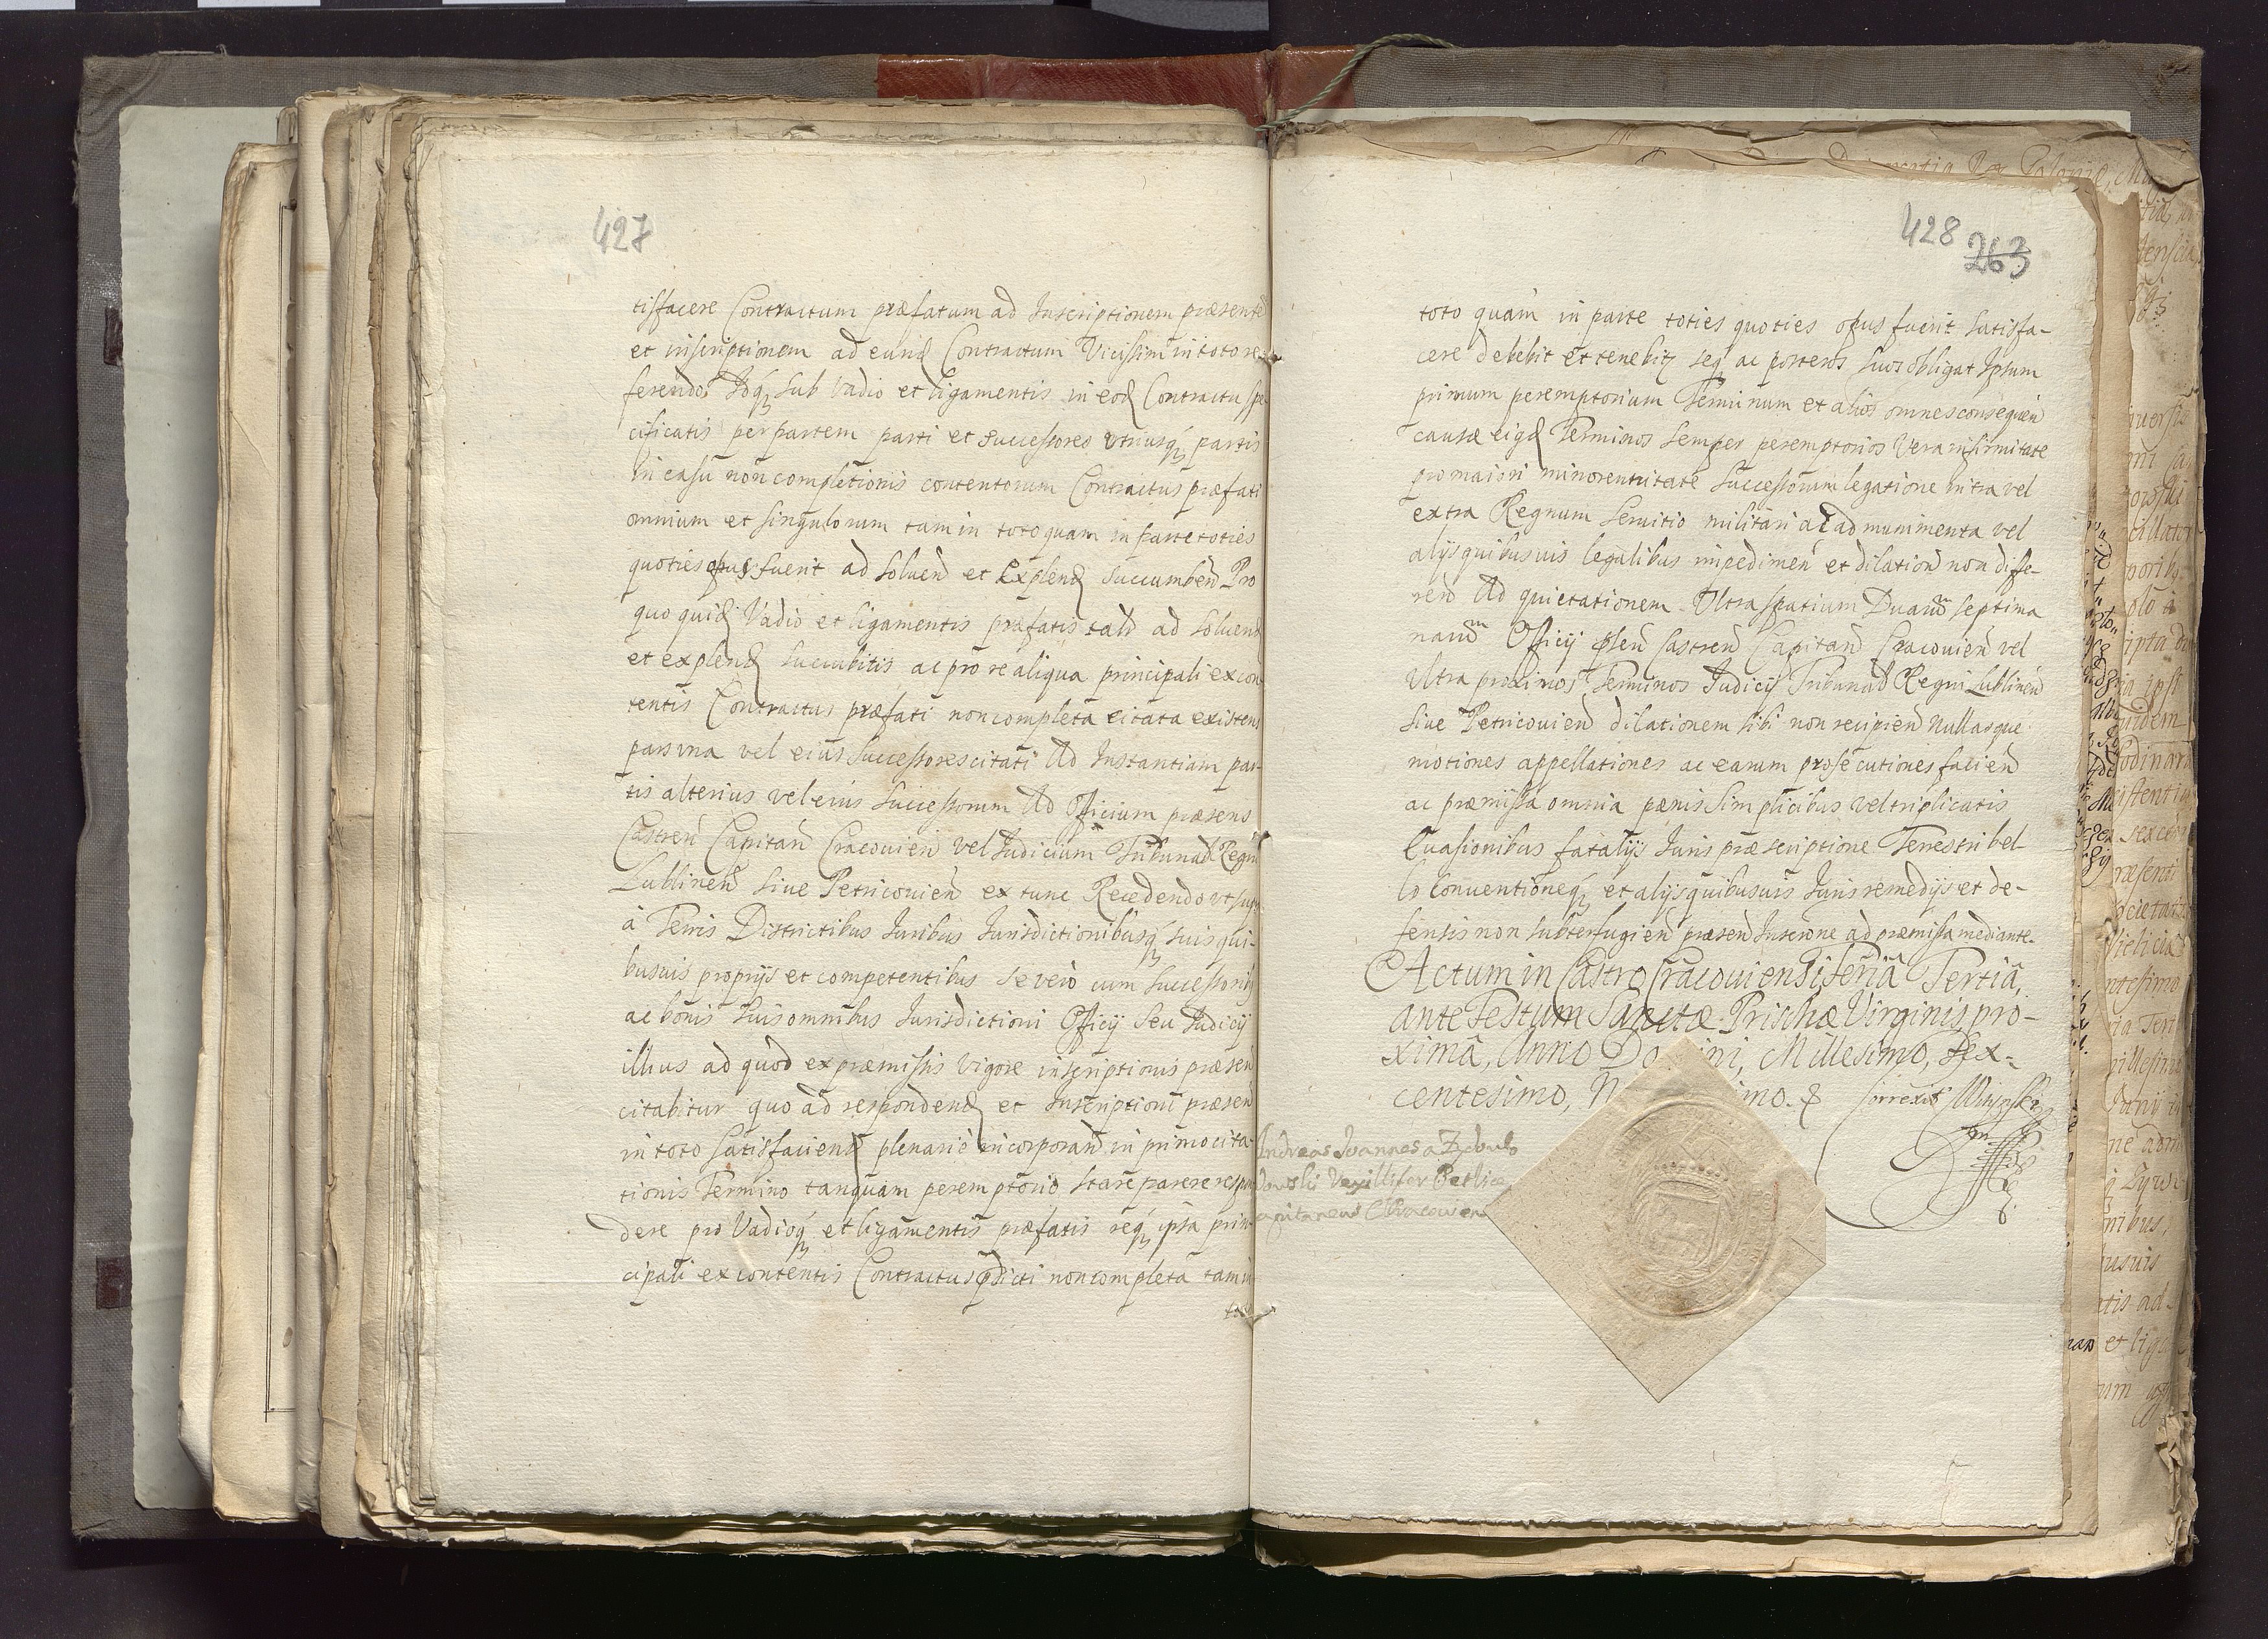 427
tisfacere Contractum præfatum ad Inscriptionem præsente
et inscriptionem ad eund Contractum Vicissim in toto re
ferendo. Idq sub Vadio et ligamentis in eod Contractu spe
cificatis per partem parti et successores utriusq partis
in casu non completionis contentorum Contractus præfati
omnium et singulorum tam in toto quam in parte toties
quoties opus fuerit ad soluen et explend succumben Pro
quo quid Vadio et ligamentis præfatis tali ad soluend
et explend succubitis ac pro re aliqua principali ex con
tentis Contractus præfati non completa citata existens
pars una vel eius Successores citati Ad Instantiam par-
tis alterius vel eius Successorum Ad Officium præsens
Castren Capitan Cracouien vel Iudicium Tribunal Regni
Lublinen siue Petricouien ex tunc Recedendo ut supr
à Terris Districtibus Iuribus Iurisdictionibusq suis qui-
busuis proprijs et competentibus se verò cum Successorib
ac bonis suis omnibus Iurisdictioni Officij seu Iudicij
illius ad quod ex præmissis vigore inscriptionis præsen
citabitur quo ad respondend et Inscriptioni præsen
in toto satisfaciend plenariè incorporan in primo cita-
tionis Termino tanquam peremptorio stare parere respon
dere pro Vadioq et ligamentis præfatis req ipsa prin-
cipali ex contentis Contractus pdicti non completa tam in
toto
428
263
toto quam in parte toties quoties opus fuerit satisfa-
cere debebit et tenebit seq ac posteros suos obligat Ipsum
primum peremptorium Terminum et alios omnes consequen
causæ eiqd Terminos semper peremptorios Vera infirmitate
pro maiori minorennitate Successorum legatione intra vel
extra Regnum seruitio militari at ad munimenta vel
alijs quibusuis legalibus impedimen et dilation non dife-
ren Ad quietationem Ultra spatium Duarum septima
narum Officij psen Castren Capitan Cracouien vel
Ultra proximos Terminos Iudicij Tribunal Regni Lublinen
siue Petricouien dilationem sibi non recipien nullasque
motiones appellationes ac earum prosecutiones facien
ac præmissa omnia pænis simplicibus vel triplicatis
Euasionibus fatalijs Iuris præscriptione Terrestri bel-
lo conuentioneq et alijs quibusuis Iuris remedijs et de-
fensis non subterfugien præsen Inscrione ad præmissa mediante.
Actum in Castro Cracouiensi feriâ Tertiâ,
ante Festum Sanctæ Prischæ Virginis pro-
ximâ, Anno Do ini, Millesimo, Sex-
centesimo, N imo. Correxit
Andreas Joannes a Zebulo
dowski Vexillifer
apitaneus Cracouien